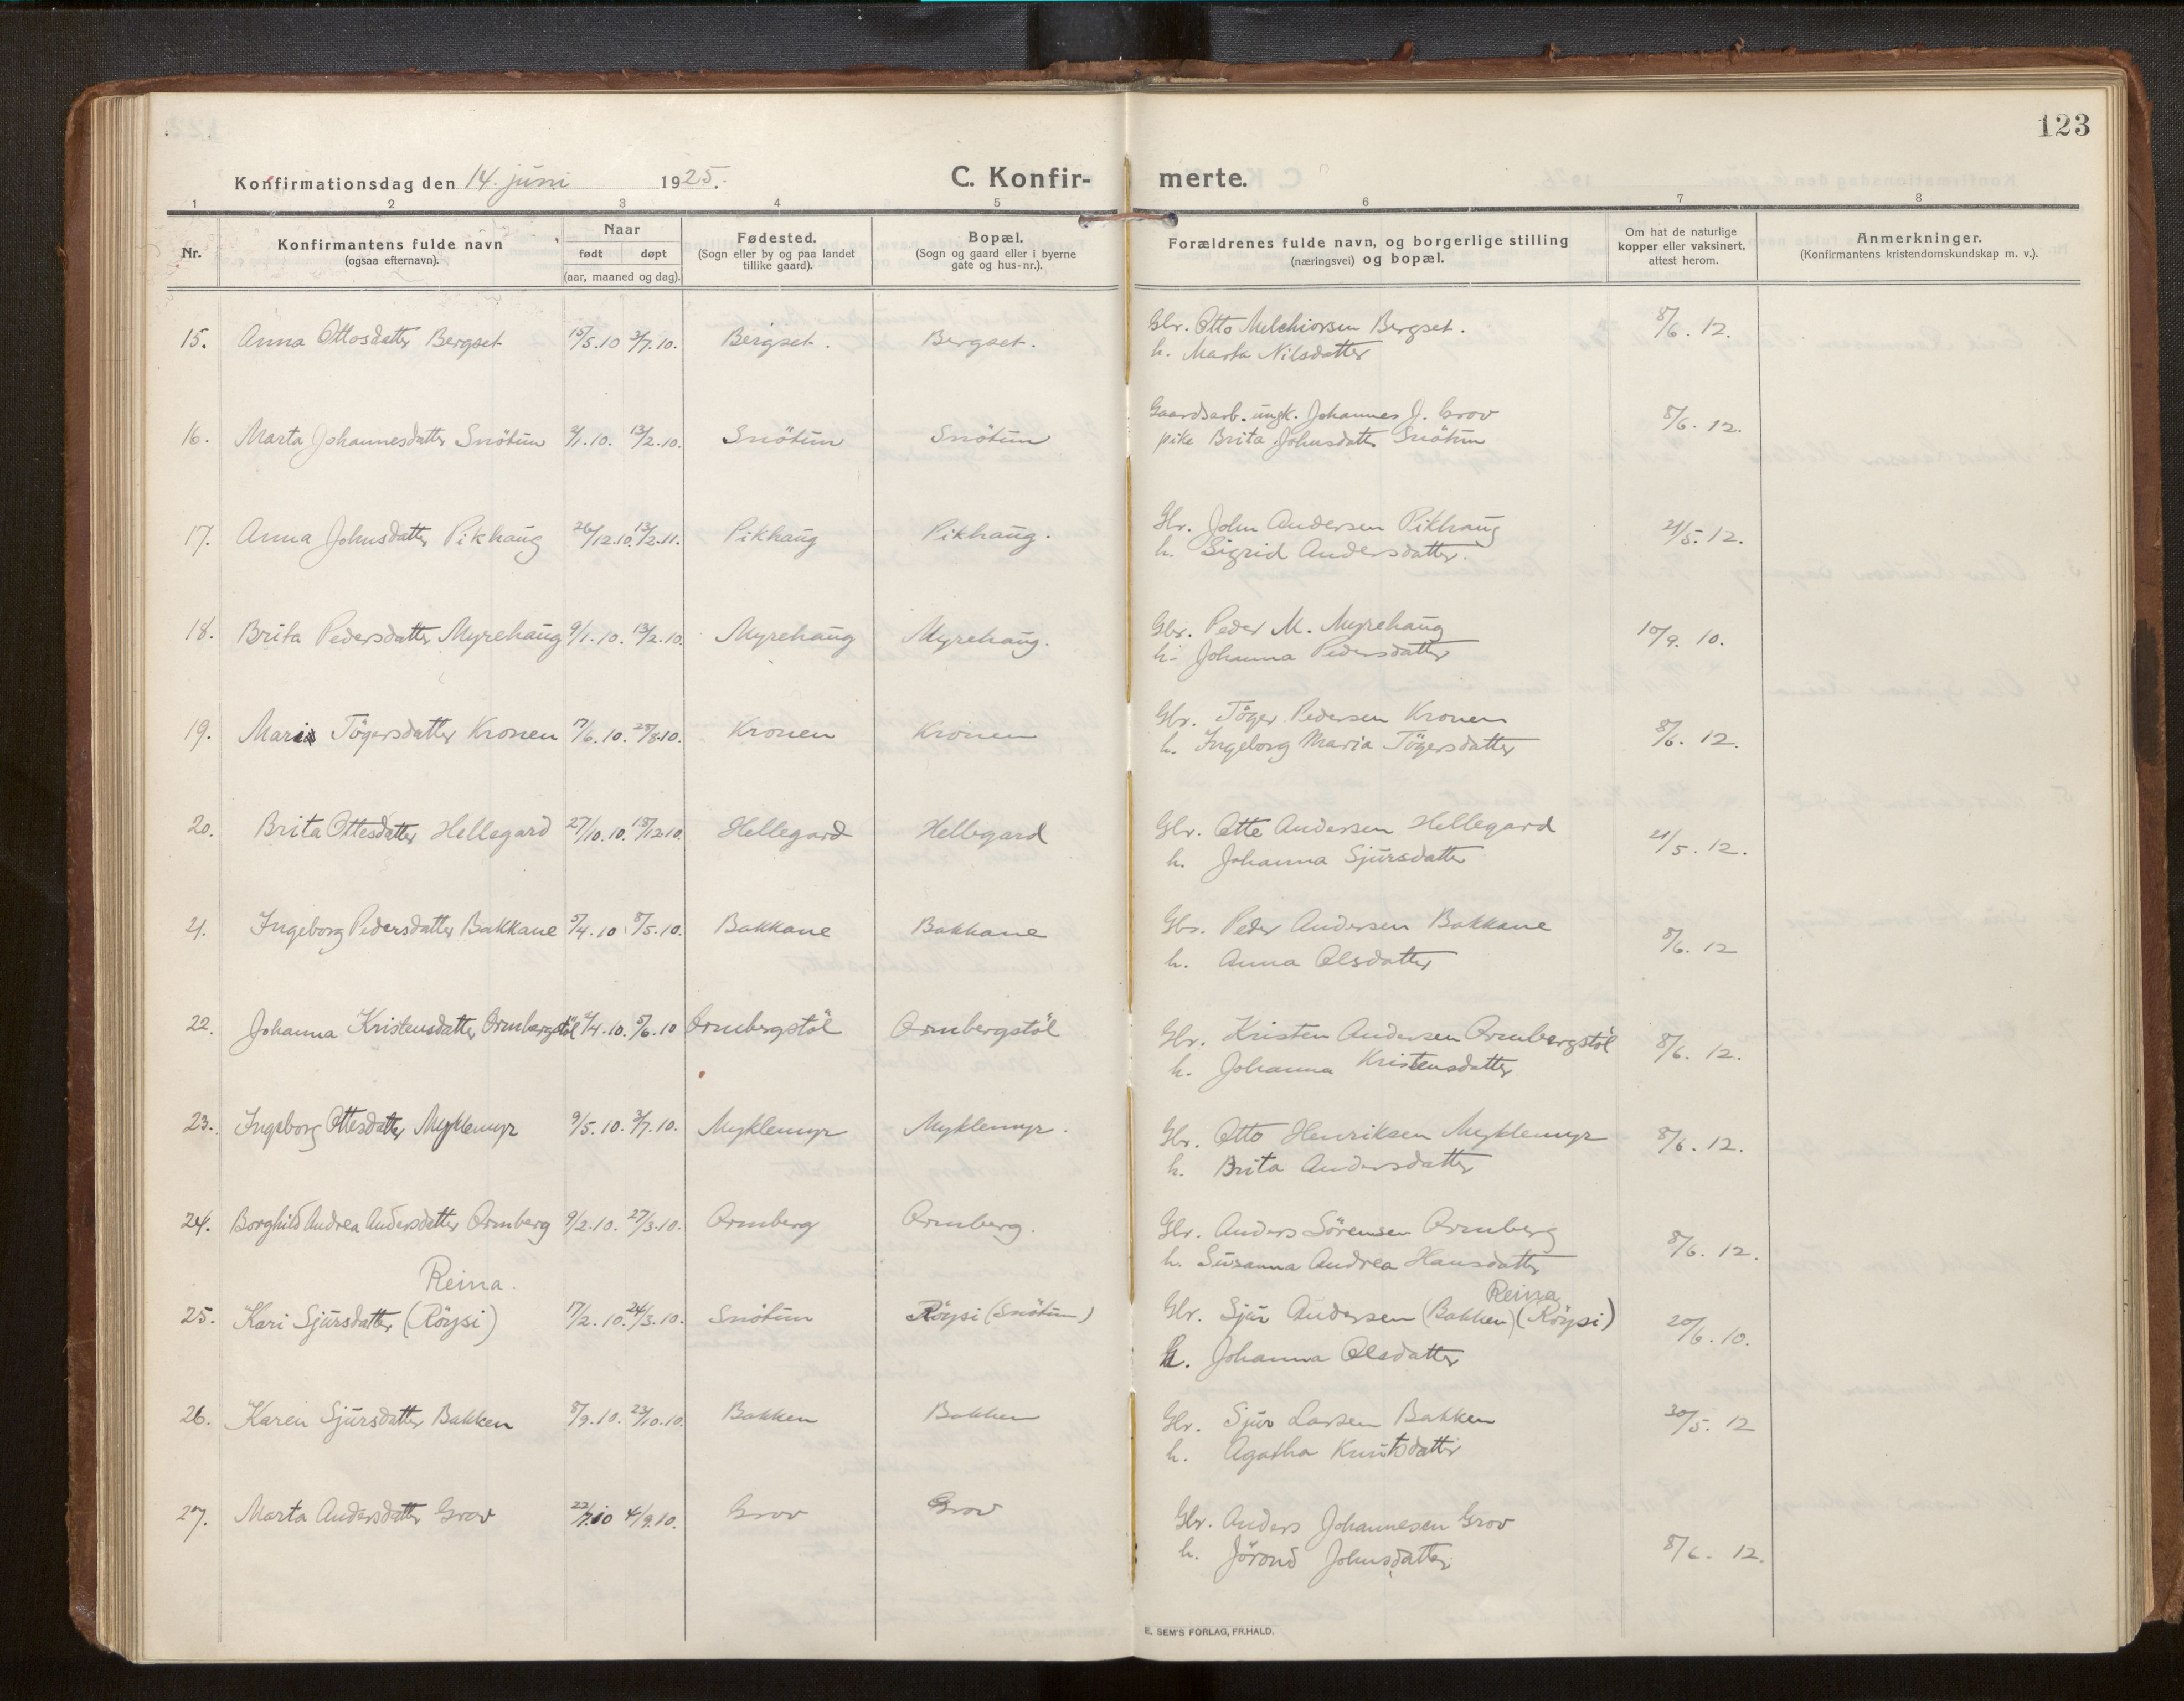 123
Konfirmationsdag den 14. juni 1925. C. Konfir- merte.
1 2 3 4 5 6 7 8
Nr. Konfirmantens fulde navn (ogsaa efternavn). Naar født døpt (aar, maaned og dag). Fødested. (Sogn eller by og paa landet tillike gaard). Bopæl. (Sogn og gaard eller i byerne gate og hus-nr.). Forældrenes fulde navn, og borgerlige stilling (næringsvei) og bopæl. Om hat de naturlige kopper eller vaksinert, attest herom. Anmerkninger. (Konfirmantens kristendomskundskap m. v.).
15. Anna Ottosdatter Bergset 15/5.10 3/7.10. Bergset. Bergset. Gbr. Otto Melchiorsen Bergset. 8/6. 12.
h. Marta Nilsdatter
16. Marta Johannesdatter Snötun 2/1.10. 13/2.10. Snötun Snötun Gaardsarb. ungk. Johannes J. Grov 8/6. 12.
pike Brita Johnsdatter Snötun
17. Anna Johnsdatter Pikhaug 26/12.10. 13/2.11. Pikhaug Pikhaug. Gbr. John Andersen Pikhaug 21/5. 12.
h. Sigrid Andersdatter.
18. Brita Pedersdatter Myrehaug 9/1.10. 13/2.10. Myrehaug Myrehaug. Gbr. Peder M. Myrehaug 10/9. 10.
h. Johanna Pedersdatter
19. Maria Tögersdatter Kronen 17/6.10. 28/8.10. Kronen Kronen Gbr. Töger Pedersen Kronen 8/6. 12.
h. Ingeborg Maria Tögersdatter
20. Brita Ottesdatter Hellegard 27/10.10. 18/12.10. Hellegard Hellegard Gbr. Otte Andersen Hellegard 21/5. 12.
h. Johanna Sjursdatter
21. Ingeborg Pedersdatter Bakkane 5/4.10 8/5.10. Bakkane Bakkane Gbr. Peder Andersen Bakkane 8/6. 12
h. Anna Olsdatter
22. Johanna Kristensdatter Ormbergstöl /4.10. 5/6.10 Ormbergstöl Ormbergstöl Gbr. Kristen Andersen Ormbergstöl 8/6. 12.
h. Johanna Kristensdatter
23. Ingeborg Ottesdatter Myklemyr 9/5.10. 3/7.10. Myklemyr Myklemyr. Gbr. Otto Henriksen Myklemyr 8/6. 12.
h. Brita Andersdatter
24. Borghild Andrea Andersdatter Ormberg 9/2.10. 27/3.10. Ormberg Ormberg. Gbr. Anders Sörensen Ormberg 8/6. 12.
h. Susanna Andrea Hansdatter
Reina. Reina
25. Kari Sjursdatter (Röysi) 17/2.10. 24/3.10. Snötun Röysi (Snötun) Gbr. Sjur Andersen (Bakken) (Röysi) 20/6. 10.
h. Johanna Olsdatter
26. Karen Sjursdatter Bakken 8/9.10. 23/10.10. Bakken Bakken Gbr. Sjur Larsen Bakken 30/5. 12
h. Agatha Knutsdatter
27. Marta Andersdatter Grov 22/7.10 4/9.10. Grov Grov Gbr. Anders Johannesen Grov 8/6. 12.
h. Jörond Johnsdatter
E. SEM'S FORLAG, FR.HALD.